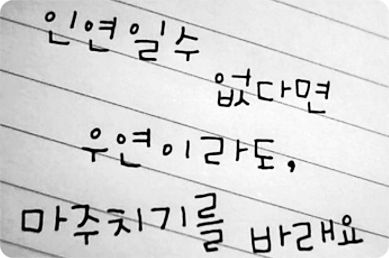 인연일수
없다면
우연이라도,
마주치기를 바래요